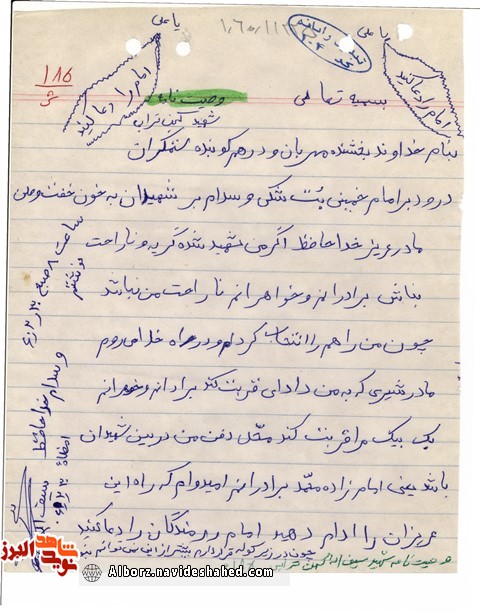 یا علی
یا علی
۱/۶۰/۱۱
امام را دعا کنید
امام را دعا کنید
۱۸۵
ش
بسمه تعالی
وصیت نامه
شهید
بنام خداوند بخشنده مهربان و درهم کوبنده ستمگران
درود بر امام خمینی بت شکن و سلام بر شهیدان به خون خفته وطن
مادر عزیز خدا حافظ اگر من شهید شدم گریه و ناراحت
نباش برادرانم و خواهرانم ناراحت من نباشد
چون من راهم را انتخاب کردم و در راه خدا می روم
مادر شیری که به من دادای قربتت کند برادرانم و خواهرانم
یک بیک مرا قربتت کند محل دفن من در بین شهیدان
باشد یعنی امام زاده محمد برادرانم امیدوام که راه این
عزیزان را ادام دهید امام و رزمندگان را دعا کنند
چون در زیر گوله قرار داریم بیشتر از این نمی توانم
وصیت نامه شهید سیف اله
ساعت ۸ صبح
نوشتم
وسلام خدا حافظ
امضاء
سیف اله
شاهد
نوید البرز
Alborz.navideshahed.com